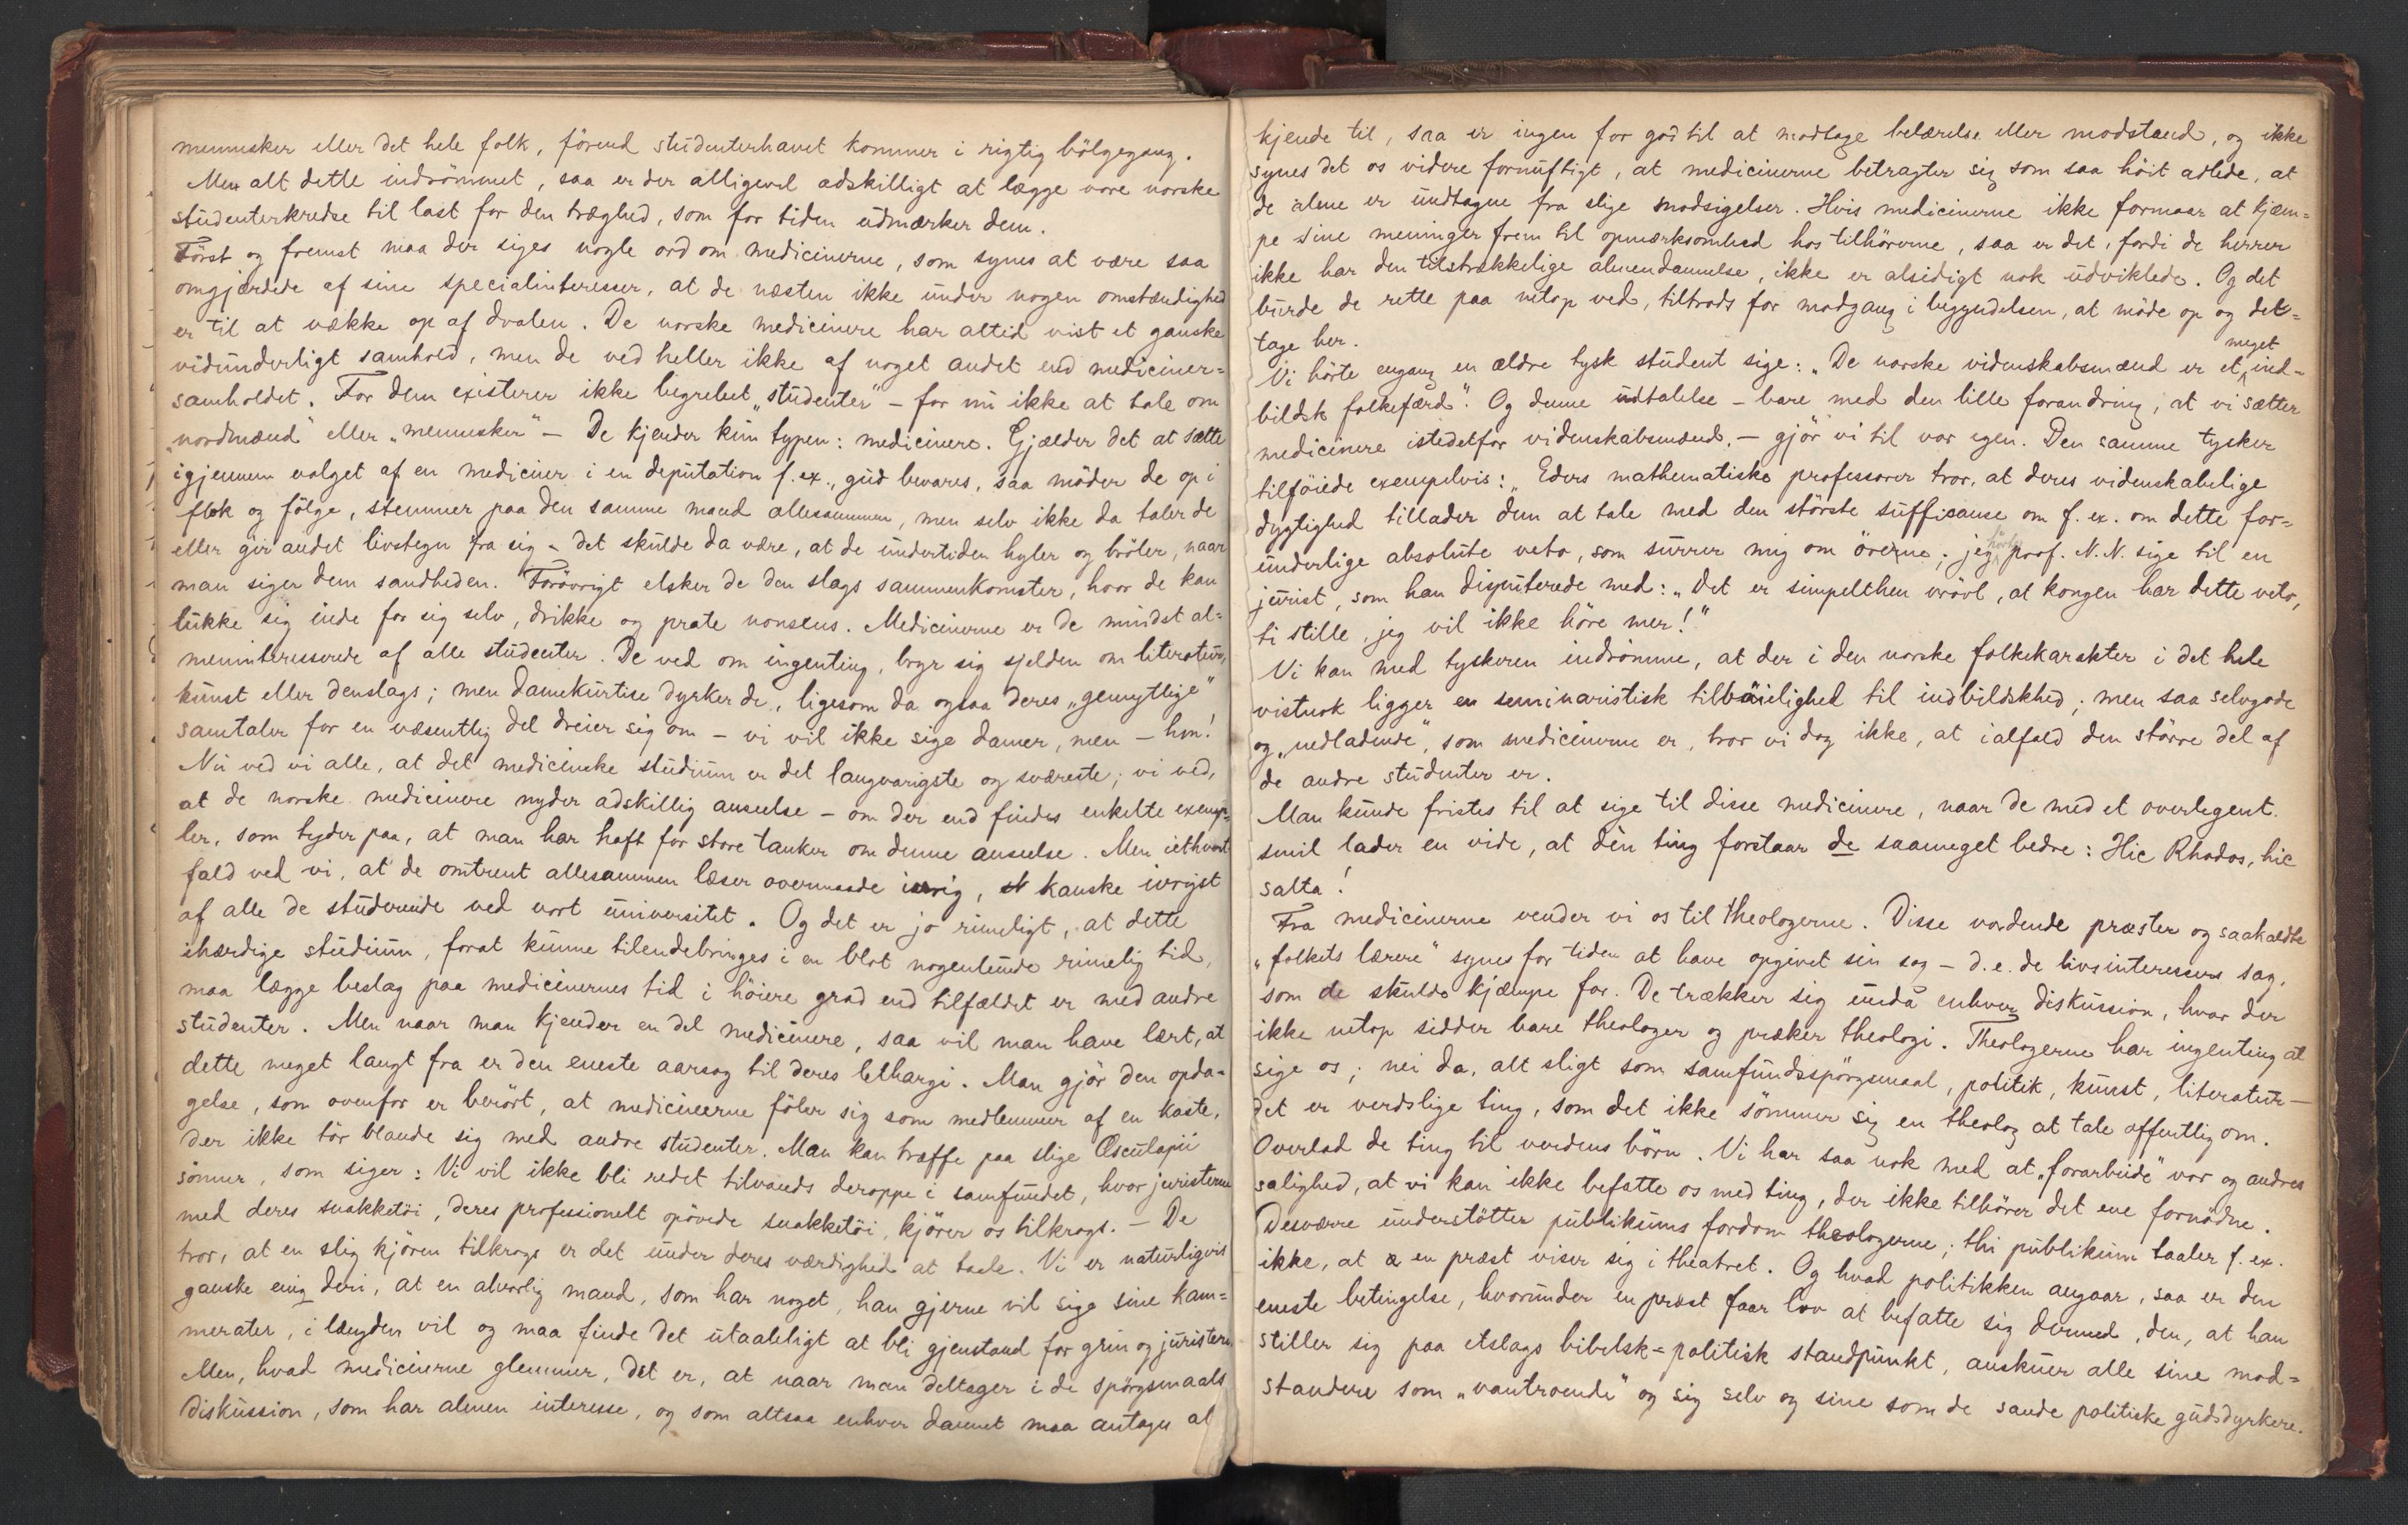 mennesker eller det hele folk, förend studenterhavet kommer i rigtig bölgegang.
Men alt dette indrömmet, saa er der alligevel adskilligt at lægge vore norske
studenterkredse til last for den træghed, som for tiden udmærker dem.
Först og fremst maa der siges nogle ord om medicinerne, som synes at være saa
omgjærdede af sine specialinteresser, at de næsten ikke under nogen omstændighed
er til at vække op af dvalen. De norske medicinere har altid vist et ganske
vidunderligt samhold, men de ved heller ikke af noget andet end mediciner=
samholdet. For dem existerer ikke begrebet „studenter" – for nu ikke at tale om
„nordmænd" eller „mennesker" – De kjender kun typen: medicinere. Gjælder det at sætte
igjennem valget af en mediciner i en deputation f. ex., gud bevares, saa möder de op i
flok og fölge, stemmer paa den samme mand allesammen, men selv ikke da taler de
eller gir andet livstegn fra sig – det skulde da være, at de undertiden hyler og bröler, naar
man siger dem sandheden. Forövrigt elsker de den slags sammenkomster, hvor de kan
lukke sig inde for sig selv, drikke og prate nonsens. Medicinerne er de mindst al=
meninteresserede af alle studenter. De ved om ingenting, bryr sig sjelden om literatur,
kunst eller denslags; men damekurtise dyrker de, ligesom da ogsaa deres „gemytlige"
samtaler for en væsentlig del dreier sig om – vi vil ikke sige damer, men – hm!
Nu ved vi alle, at det medicinske studium er det langvarigste og sværeste; vi ved,
at de norske medicinere nyder adskillig anseelse – om der end findes enkelte exemp=
ler, som tyder paa, at man har haft for store tanker om denne anseelse. Men iethvert
fald ved vi, at de omtrent allesammen læser overmaade ivrig, kanske ivrigst
af alle de studerende ved vort universitet. Og det er jo rimeligt, at dette
ihærdige studium, forat kunne tilendebringes i en blot nogenlunde rimelig tid,
maa lægge beslag paa medicinernes tid i höiere grad end tilfældet er med andre
studenter. Men naar man kjender en del medicinere, saa vil man have lært, at
dette meget langt fra er den eneste aarsag til deres lethargi. Man gjör den opda=
gelse, som ovenfor er berört, at medicinerne föler sig som medlemmer af en kaste,
der ikke tör blande sig med andre studenter. Man kan træffe paa slige Æsculapii
sönner, som siger: Vi vil ikke bli redet tilvands deroppe i samfundet, hvor juristerne
med deres snakketöi, deres professionelt opövede snakketöi, kjörer os tilkrogs. – De
tror, at en slig kjören tilkrogs er det under deres værdighed at taale. Vi er naturligvis
ganske enig deri, at en alvorlig mand, som har noget, han gjerne vil sige sine kam=
merater, i længden vil og maa finde det utaaleligt at bli gjenstand for grin og juristeri.
Men, hvad medicinerne glemmer, det er, at naar man deltager i de spörgsmaals
diskussion, som har almen interesse, og som altsaa enhver dannet maa antages at
kjende til, saa er ingen for god til at modtage belærelse eller modstand, og ikke
synes det os videre fornuftigt, at medicinerne betragter sig som saa höit adlede, at
de alene er undtagne fra slige modsigelser. Hvis medicinerne ikke formaar at kjæm=
pe sine meninger frem til opmærksomhed hos tilhörerne, saa er det, fordi de herrer
ikke har den tilstrækkelige almendannelse, ikke er alsidigt nok udviklede. Og det
burde de rette paa netop ved, tiltrods for modgang i begyndelsen, at möde op og del=
tage her.
Vi hörte engang en ældre tysk student sige: „De norske videnskabsmænd er et meget ind=
bildsk folkefærd". Og denne udtalelse – bare med den lille forandring, at vi sætter
medicinere istedetfor videnskabsmænd, – gjör vi til vor egen. Den samme tysker
tilföiede exempelvis: „Eders mathematiske professorer tror, at deres videnskabelige
dygtighed tillader dem at tale med den störste suffisance om f. ex. om dette for=
underlige absolute veto, som surrer mig om örerne; jeg hörte prof. N.N. sige til en
jurist, som han disputerede med: „Det er simpelthen vrövl, at kongen har dette veto,
ti stille, jeg vil ikke höre mer!"
Vi kan med tyskeren indrömme, at der i den norske folkekarakter i det hele
vistnok ligger en seminaristisk tilböielighed til indbildskhed; men saa selvgode
og „nedladende", som medicinerne er, tror vi dog ikke, at ialfald den större del af
de andre studenter er.
Man kunde fristes til at sige til disse medicinere, naar de med et overlegent
smil lader en vide, at dén ting forstaar de saameget bedre: Hic Rhodos, hic
salta!
Fra medicinerne vender vi os til theologerne. Disse vordende præster og saakaldte
„folkets lærere" synes for tiden at have opgivet sin sag – d. e. de livsinteressers sag,
som de skulde kjæmpe for. De trækker sig unda enhver diskussion, hvor der
ikke netop sidder bare theologer og præker theologi. Theologerne har ingenting at
sige os; nei da, alt sligt som samfundsspörgsmaal, politik, kunst, literatur –
det er verdslige ting, som det ikke sömmer sig en theolog at tale offentlig om.
Overlad de ting til verdens börn. Vi har saa nok med at „forarbeide" vor og andres
salighed, at vi kan ikke befatte os med ting, der ikke tilhörer det ene fornödne.
Desværre understötter publikums fordom theologerne; thi publikum taaler f. ex.
ikke, at en præst viser sig i theatret. Og hvad politikken angaar, saa er den
eneste betingelse, hvorunder en præst faar lov at befatte sig dermed, den, at han
stiller sig paa etslags bibelsk=politisk standpunkt, anskuer alle sine mod=
standere som „vantroende" og sig selv og sine som de sande politiske gudsdyrkere.